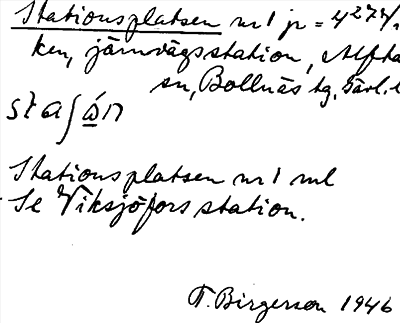 Stationsplatsen nr 1 jr = 4
ken, järnvägsstation, Alfta
sn, Bollnäs tg, Gävl. l
Stationsplatsen nr 1 ml
Se Viksjöfors station.
T. Birgerson 1946